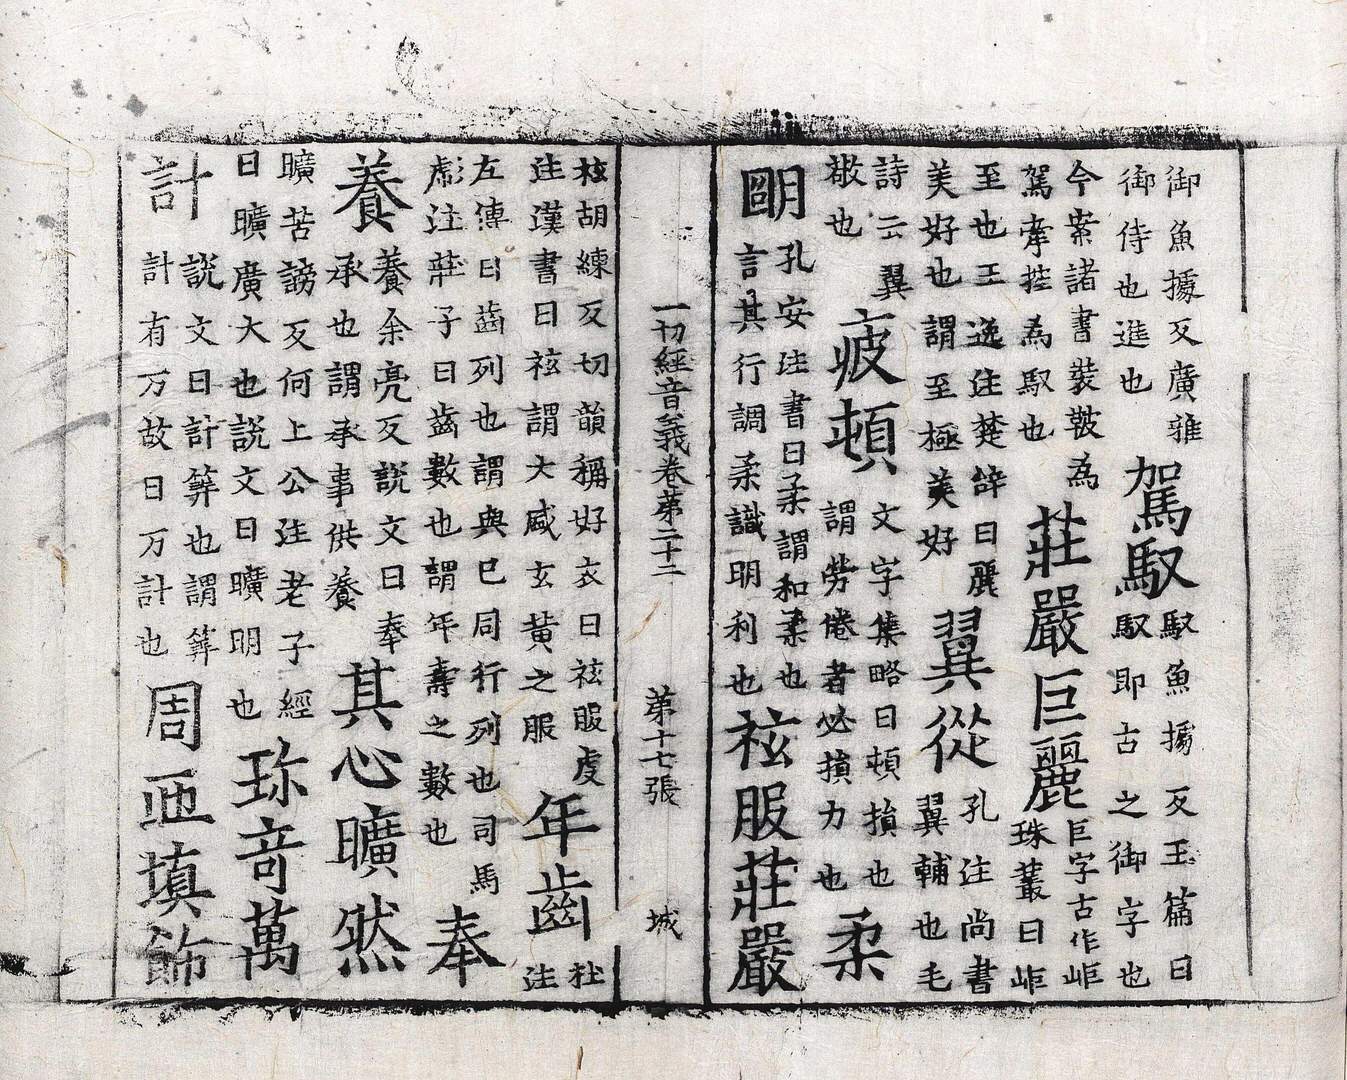 御魚據反廣雅御侍也進也駕馭馭魚據反玉篇曰馭即古之御字也
今案諸書裝鞁為駕牽控為馭也莊嚴巨麗巨字古作岠珠叢曰岠
至也王逸注楚辞曰麗美好也謂至極美好翼從孔注尚書翼輔也毛
詩云翼敬也疲頓文字集略曰頓損也謂勞倦者必損力也柔
明孔安注書曰柔謂和柔也言其行調柔識明利也袨服莊嚴
一切經音義卷第二十二 第十七張 城
袨胡練反切韻稱好衣曰袨服虔注漢書曰袨謂大盛玄黃之服年齒杜注
左傳曰齒列也謂與已同行列也司馬彪注莊子曰齒數也謂年壽之數也奉
養養余亮反說文曰奉承也謂承事供養其心曠然
曠苦謗反何上公注老子經曰曠廣大也說文曰曠明也珎竒萬
計說文曰計筭也謂筭計有万故曰万計也周匝填飾